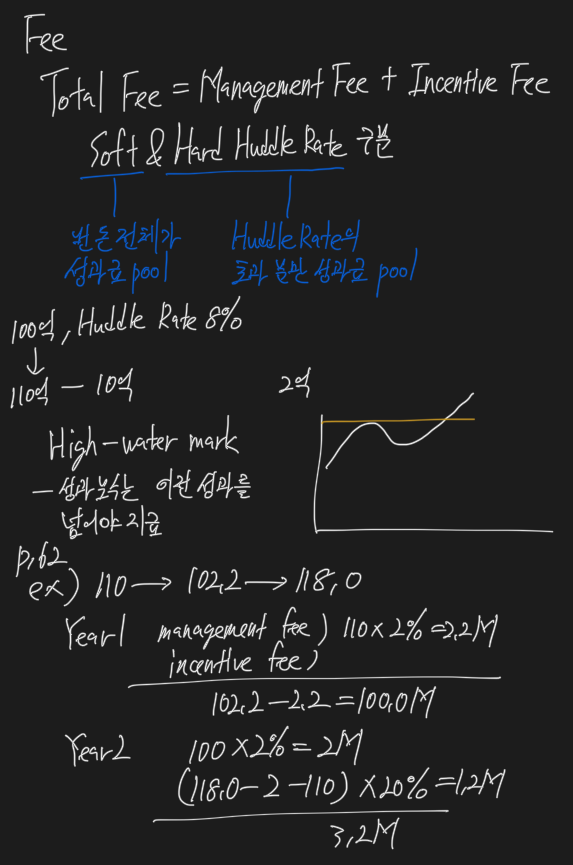 Fee
Total Fee = Management Fee + Incentive Fee
Soft & Hard Huddle Rate 구분
번 돈 전체가
성과급 pool
Huddle Rate의
초과 분만 성과급 pool
100억, Huddle Rate 8%
↓
110억 — 10억
2억
High-water mark
— 성과보수는 이전 성과를
넘어야 지급
p.62
ex) 110 → 102.2 → 118.0
Year1 management fee) 110 × 2% = 2.2M
incentive fee)
102.2 - 2.2 = 100.0M
Year2 100 × 2% = 2M
(118.0 - 2 - 110) × 20% = 1.2M
3.2M